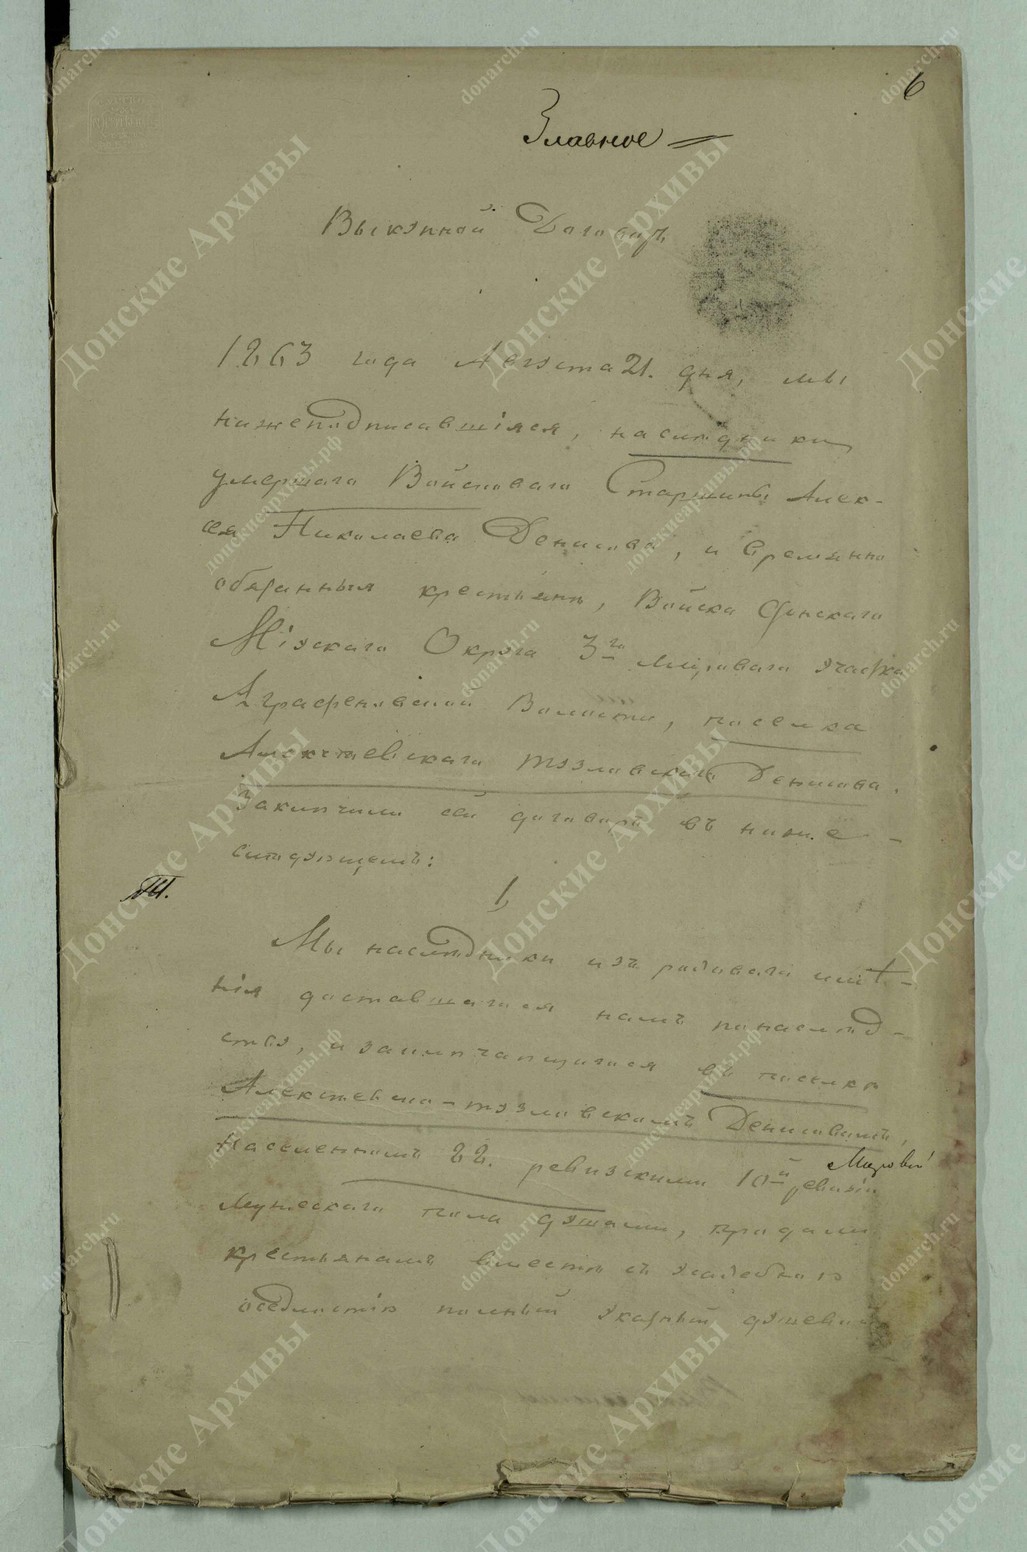 6
Главное
Выкупной Договоръ
1863 года Августа 21. дня, мы
нижеподписавшіяся, наслѣдники
умершаго Войсковаго Старшины Алек-
сея Николаева Денисова, и временно
обязанныя крестьяне, Войска Донскаго
Міускаго Округа 3го Мироваго участка
Аграфеновской Волости, поселка
Алексѣевскаго тузловскаго Денисова.
Заключили сей договоръ въ ниже-
слѣдующемъ:
1,
Мы наслѣдники изъ родоваго имѣ-
нія доставшагося намъ по наслѣд-
ству, и заключающагося въ поселкѣ
Алексѣевско-тузловскомъ Денисовомъ,
Населенномъ 22. ревизскими 10й ревизіи
Мужескаго пола душами, продали
крестьянамъ вместѣ съ усадебною
оседлостію полный указный душевой